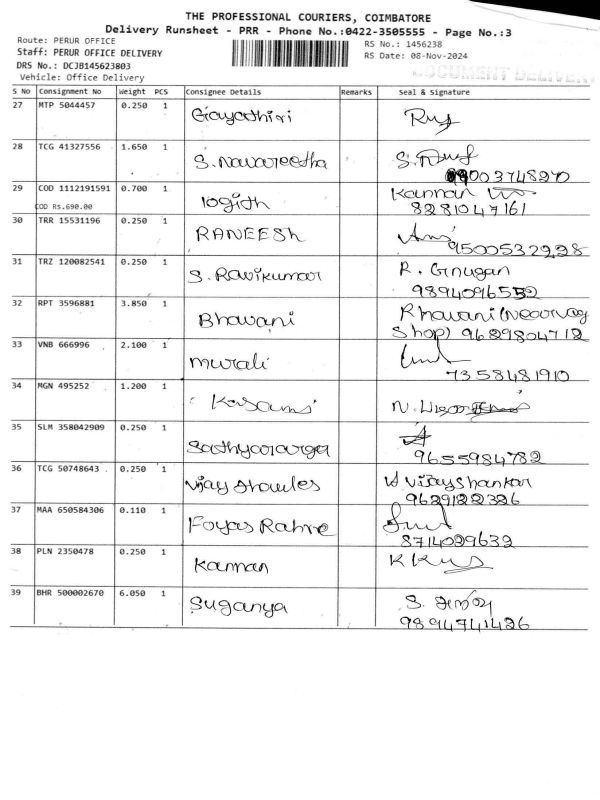 THE PROFESSIONAL COURIERS, COIMBATORE
Delivery Runsheet - PRR - Phone No.:0422-3505555 - Page No.:3
Route: PERUR OFFICE
RS No.: 1456238
Staff: PERUR OFFICE DELIVERY
RS Date: 08-Nov-2024
DRS No.: DCJB145623803
DOCUMENT DELIVERY
Vehicle: Office Delivery
S No Consignment No Weight PCS Consignee Details Remarks Seal & Signature
27 MTP 5044457 0.250 1 Gayathiri
28 TCG 41327556 1.650 1 S. Navareetha
29 COD 1112191591 0.700 1 logith Kannan
COD Rs.690.00 8281047161
30 TRR 15531196 0.250 1 RANEESh
9500532228
31 TRZ 120082541 0.250 1 S. Ravikumar R. Gnugan
9894096552
32 RPT 3596881 3.850 1 Bhavani
Shop) 9629804712
33 VNB 666996 2.100 1 murali
7358481910
34 MGN 495252 1.200 1
35 SLM 358042909 0.250 1
9655984782
36 TCG 50748643 0.250 1 Vijay Vijayshankar
9629122326
37 MAA 650584306 0.110 1 Foyas Rahne
8714029632
38 PLN 2350478 0.250 1 Kannan
39 BHR 500002670 6.050 1 Suganya S.
9894741426